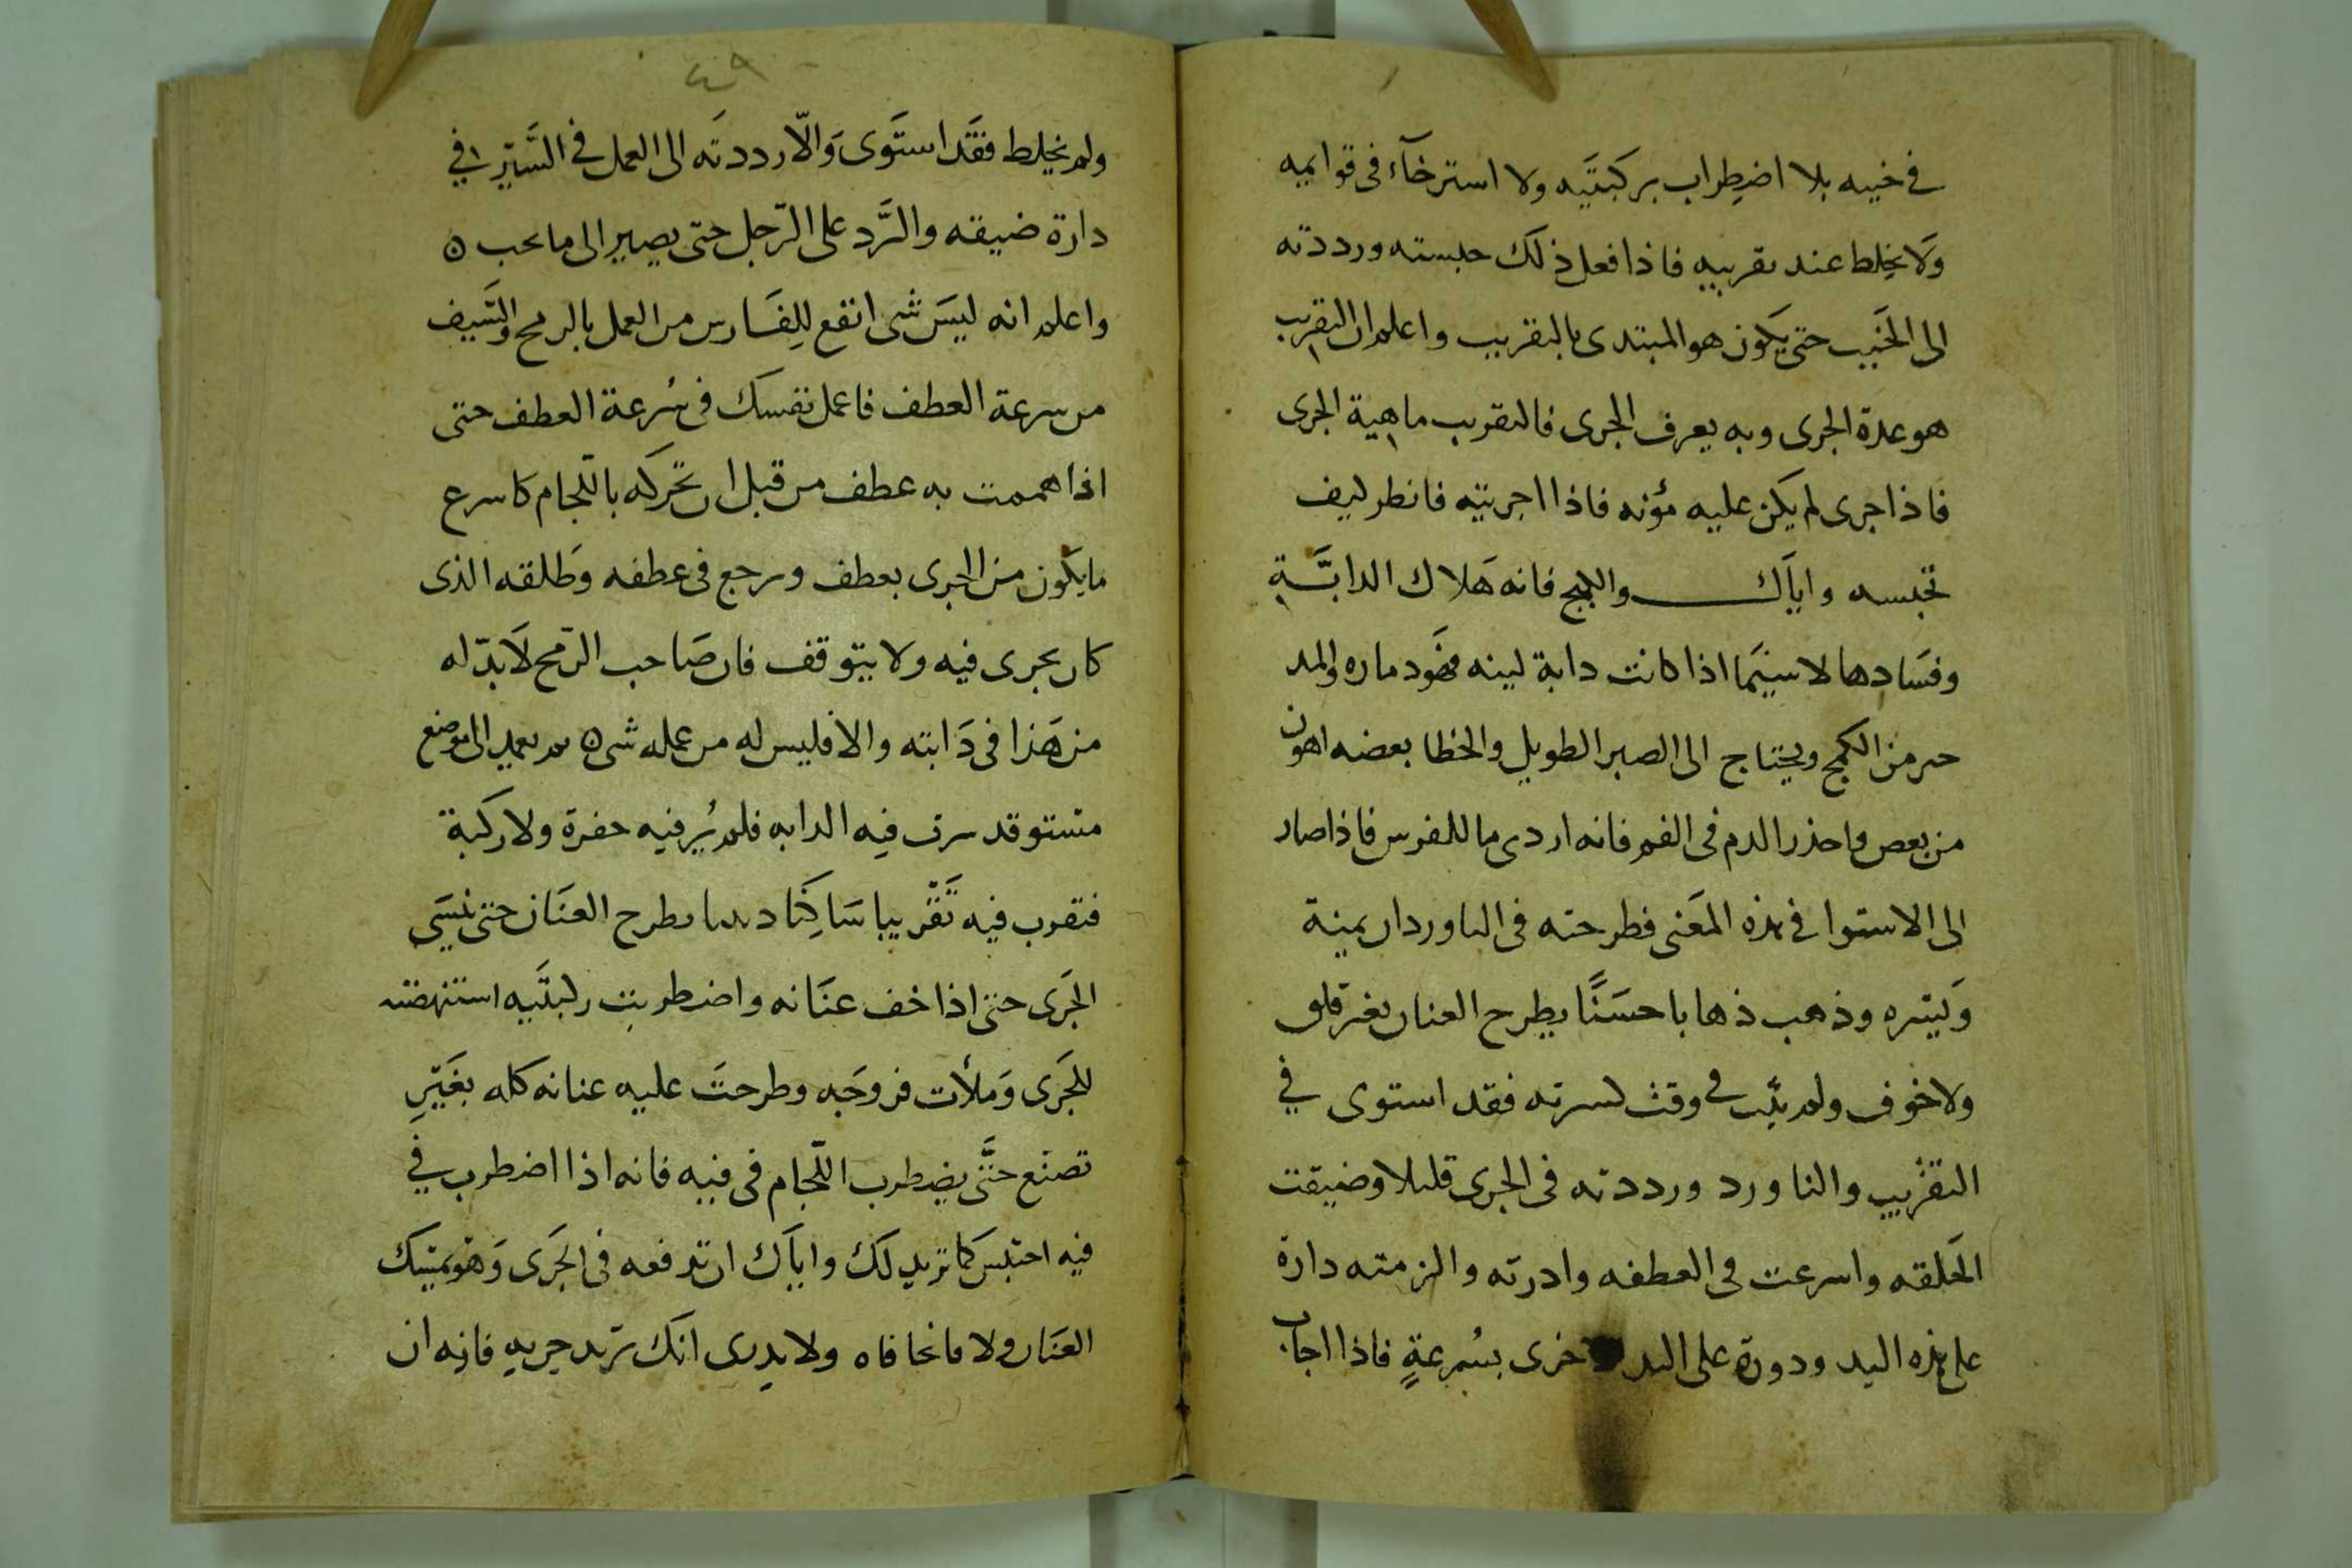 في خببه بلا اضطراب بركبتيه ولا استرخآء فى قوايمه
ولا يخلط عند تقريبه فاذا فعل ذلك حبسته ورددته
الى الخبيب حتى يكون هو المبتدى بالتقريب واعلم ان التقريب
هو عدة الجرى وبه يعرف الجرى فالتقريب ماهية الجرى
فاذا جرى لم يكن عليه مؤنه فاذا اجريته فانظر كيف
تحبسه واياك والكبح فانه هلاك الدابة
وفسادها لا سيما اذا كانت دابة لينه والمد
من الكبح ويحتاج الى الصبر الطويل والخطا بعضه اهون
من بعض واحذر الدم فى الفم فانه اردى ما للفرس فاذا صار
الى الاستوا في هذه المعنى فطرحته فى الناورد ان يمينة
ويسره وذهب ذهابا حسنا يطرح العنان بغير قلق
ولا خوف ولم في وقت فقد استوى في
التقريب والناورد ورددته فى الجرى قليلا وضيقت
الحلقه واسرعت فى العطفه وادرته والزمته دارة
على هذه اليد ودورة على اليد خرى بسرعة فاذا اجاب
٤٩
ولم يخلط فقد استوى والّا رددته الى العمل في السير في
دارة ضيقه والرد على الرجل حتى يصير الى ما تحب ه
واعلم انه ليس شى انفع للفارس من العمل بالرمح والسيف
من سرعة العطف فاعمل نفسك فى سرعة العطف حتى
اذا هممت به عطف من قبل ان تحركه باللجام كاسرع
ما يكون من الجرى يعطف ويرجع فى عطفه وطلقه الذى
كان يجرى فيه ولا يتوقف فان صاحب الرمح لا بدّ له
من هذا فى دابته والا فليس له من عمله شى ه ثم تعمد الى موضع
مستو قد سرت فيه الدابه فلم ير فيه حفرة ولا ركبة
فتقرب فيه تقريبا ساكنا يطرح العنان حتى ينسى
الجرى حتى اذا خف عنانه واضطربت ركبتيه استنهضته
للجرى وملأت فروجه وطرحت عليه عنانه كله بغير
تصنع حتى يضطرب اللجام فى فيه فانه اذا اضطرب في
فيه احتبس كما تريد لك واياك ان تدفعه فى الجرى وهو يمسك
العنان ولا فاتحا فاه ولا يدرى انك تريد جريه فانه ان